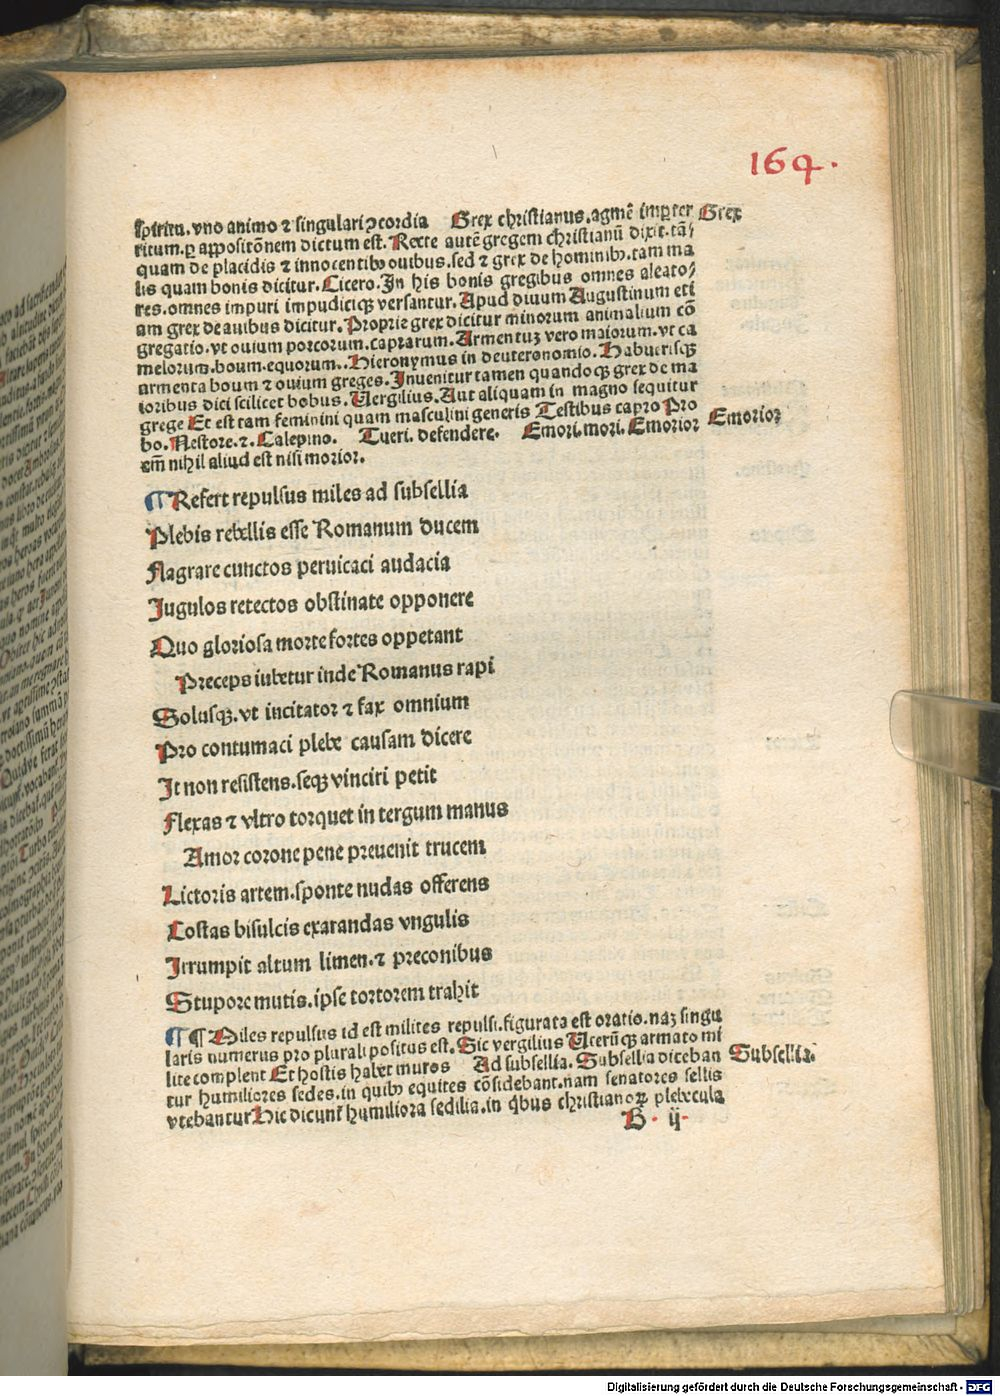 164.
spiritu. vno animo ⁊ singulari ꝯcordia Grex christianus. agmē imꝑter Grex
ritum. ꝑ appositōnem dictum est. Recte autē gregem christianū dixit. tā/
quam de placidis ⁊ innocentibꝰ ouibus. sed ⁊ grex de hominibꝰ. tam ma
lis quam bonis dicitur. Cicero. In his bonis gregibus omnes aleato/
res. omnes impuri impudiciqꝫ versantur. Apud diuum Augustinum eti
am grex de auibus dicitur. Proprie grex dicitur minorum animalium cō
gregatio. vt ouium porcorum. caprarum. Armentuꝫ vero maiorum. vt ca
melorum. boum. equorum.. Hieronymus in deuteronomio. Habuerisqꝫ
armenta boum ⁊ ouium greges. Inuenitur tamen quandoqꝫ grex de ma
ioribus dici scilicet bobus. Uergilius. Aut aliquam in magno sequitur
grege Et est tam feminini quam masculini generis Testibus capro Pro
bo. Nestore. ⁊. Calepino. Tueri. defendere. Emori. mori. Emorior Emorior
em̄ nihil aliud est nisi morior.
¶ Refert repulsus miles ad subsellia
Plebis rebellis esse Romanum ducem
Flagrare cunctos peruicaci audacia
Jugulos retectos obstinate opponere
Quo gloriosa morte fortes oppetant
Preceps iubetur inde Romanus rapi
Solusqꝫ. vt incitator ⁊ fax omnium
Pro contumaci plebe causam dicere
It non resistens. seqꝫ vinciri petit
Flexas ⁊ vltro torquet in tergum manus
Amor corone pene preuenit trucem
Lictoris artem. sponte nudas offerens
Costas bisulcis exarandas vngulis
Irrumpit altum limen. ⁊ preconibus
Stupore mutis. ipse tortorem trahit
¶ ¶ Miles repulsus id est milites repulsi. figurata est oratio. naꝫ singu
laris numerus pro plurali positus est. Sic vergilius Uterūqꝫ armato mi
lite complent Et hostis habet muros Ad subsellia. Subsellia diceban Subsellia.
tur humiliores sedes. in quibꝰ equites cōsidebant. nam senatores sellis
vtebantur Hic dicunt̄ humiliora sedilia. in q̇bus christianoꝝ plebecula
B. ij.
Digitalisierung gefördert durch die Deutsche Forschungsgemeinschaft - DFG